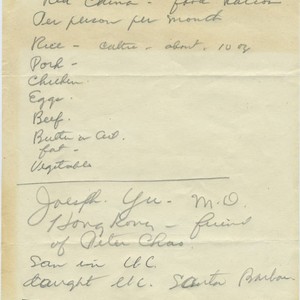 Red China - food Ration
Per person per month
Rice - about 10 oz
Pork -
Chicken
Eggs.
Beef.
Butter or Oil.
fat -
Vegetables
Joseph Yu - M.D.
Hong Kong - friend
of Peter Chao
Son in U.C.
taught U.C. Santa Barbara